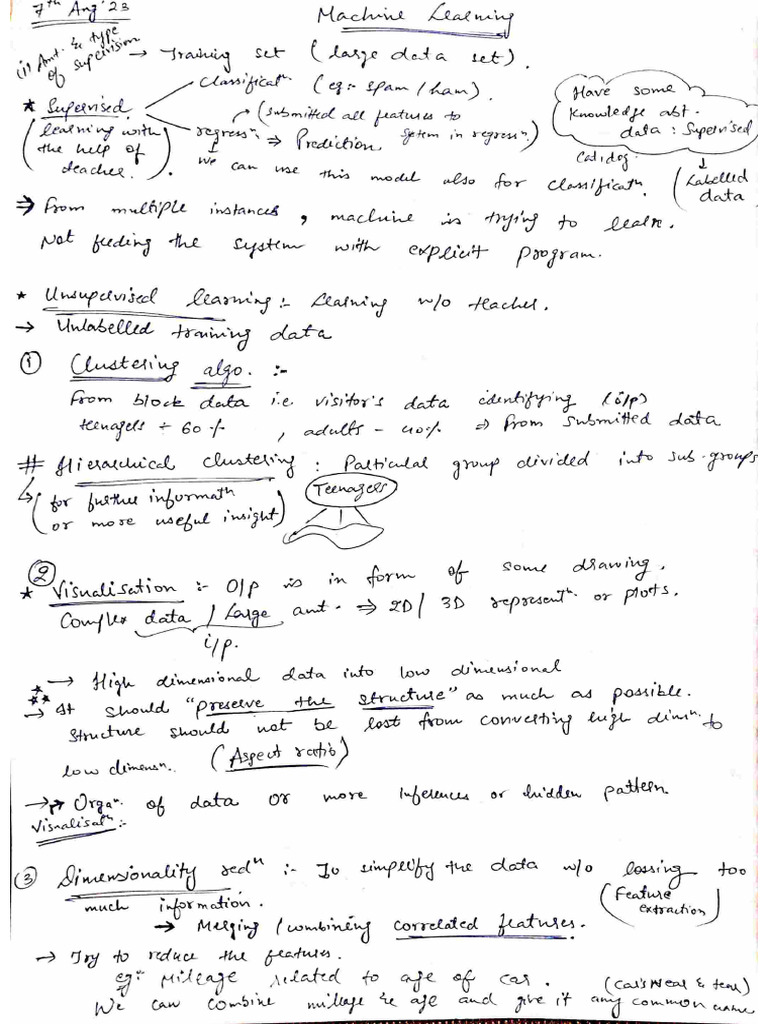 7th Aug'23
Machine Learning
(i) Amt. & type of supervision → Training set (large data set).
Classificatn (eg:- spam / ham).
* Supervised
(learning with the help of teacher.)
(submitted all features to system in regressn)
regressn ⇒ Prediction
Have some knowledge abt. data : Supervised
↓
(Labelled data
Cat, dog
we can use this model also for classificatn.
⇒ From multiple instances, machine is trying to learn.
Not feeding the system with explicit program.
* Unsupervised learning :- Learning w/o teacher.
→ Unlabelled training data
① Clustering algo. :-
From block data i.e. visitor's data identifying (i/p)
teenagers ÷ 60 %, adults - 40% ⇒ From submitted data
# Hierarchical clustering : Particular group divided into sub-groups
(for further informatn
or more useful insight)
Teenagers
②
* Visualisation :- O/p is in form of some drawing.
Complex data / Large amt. ⇒ 2D / 3D representn or plots.
i/p.
→ High dimensional data into low dimensional
→ It should "preserve the structure" as much as possible.
Structure should not be lost from converting high dimsn to
low dimensn. (Aspect ratio)
→ Organ. of data or more inferences or hidden pattern
Visualisatn :-
③ Dimensionality redn :- To simplify the data w/o lossing too
much information.
(Feature extraction)
→ Merging / combining correlated features.
→ Try to reduce the features.
eg:- Mileage related to age of car. (Car's Wear & tear)
We can combine mileage & age and give it any common name